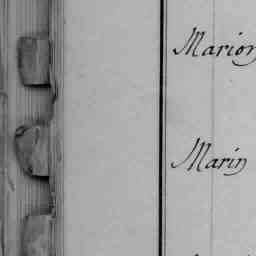 Marion
Marin